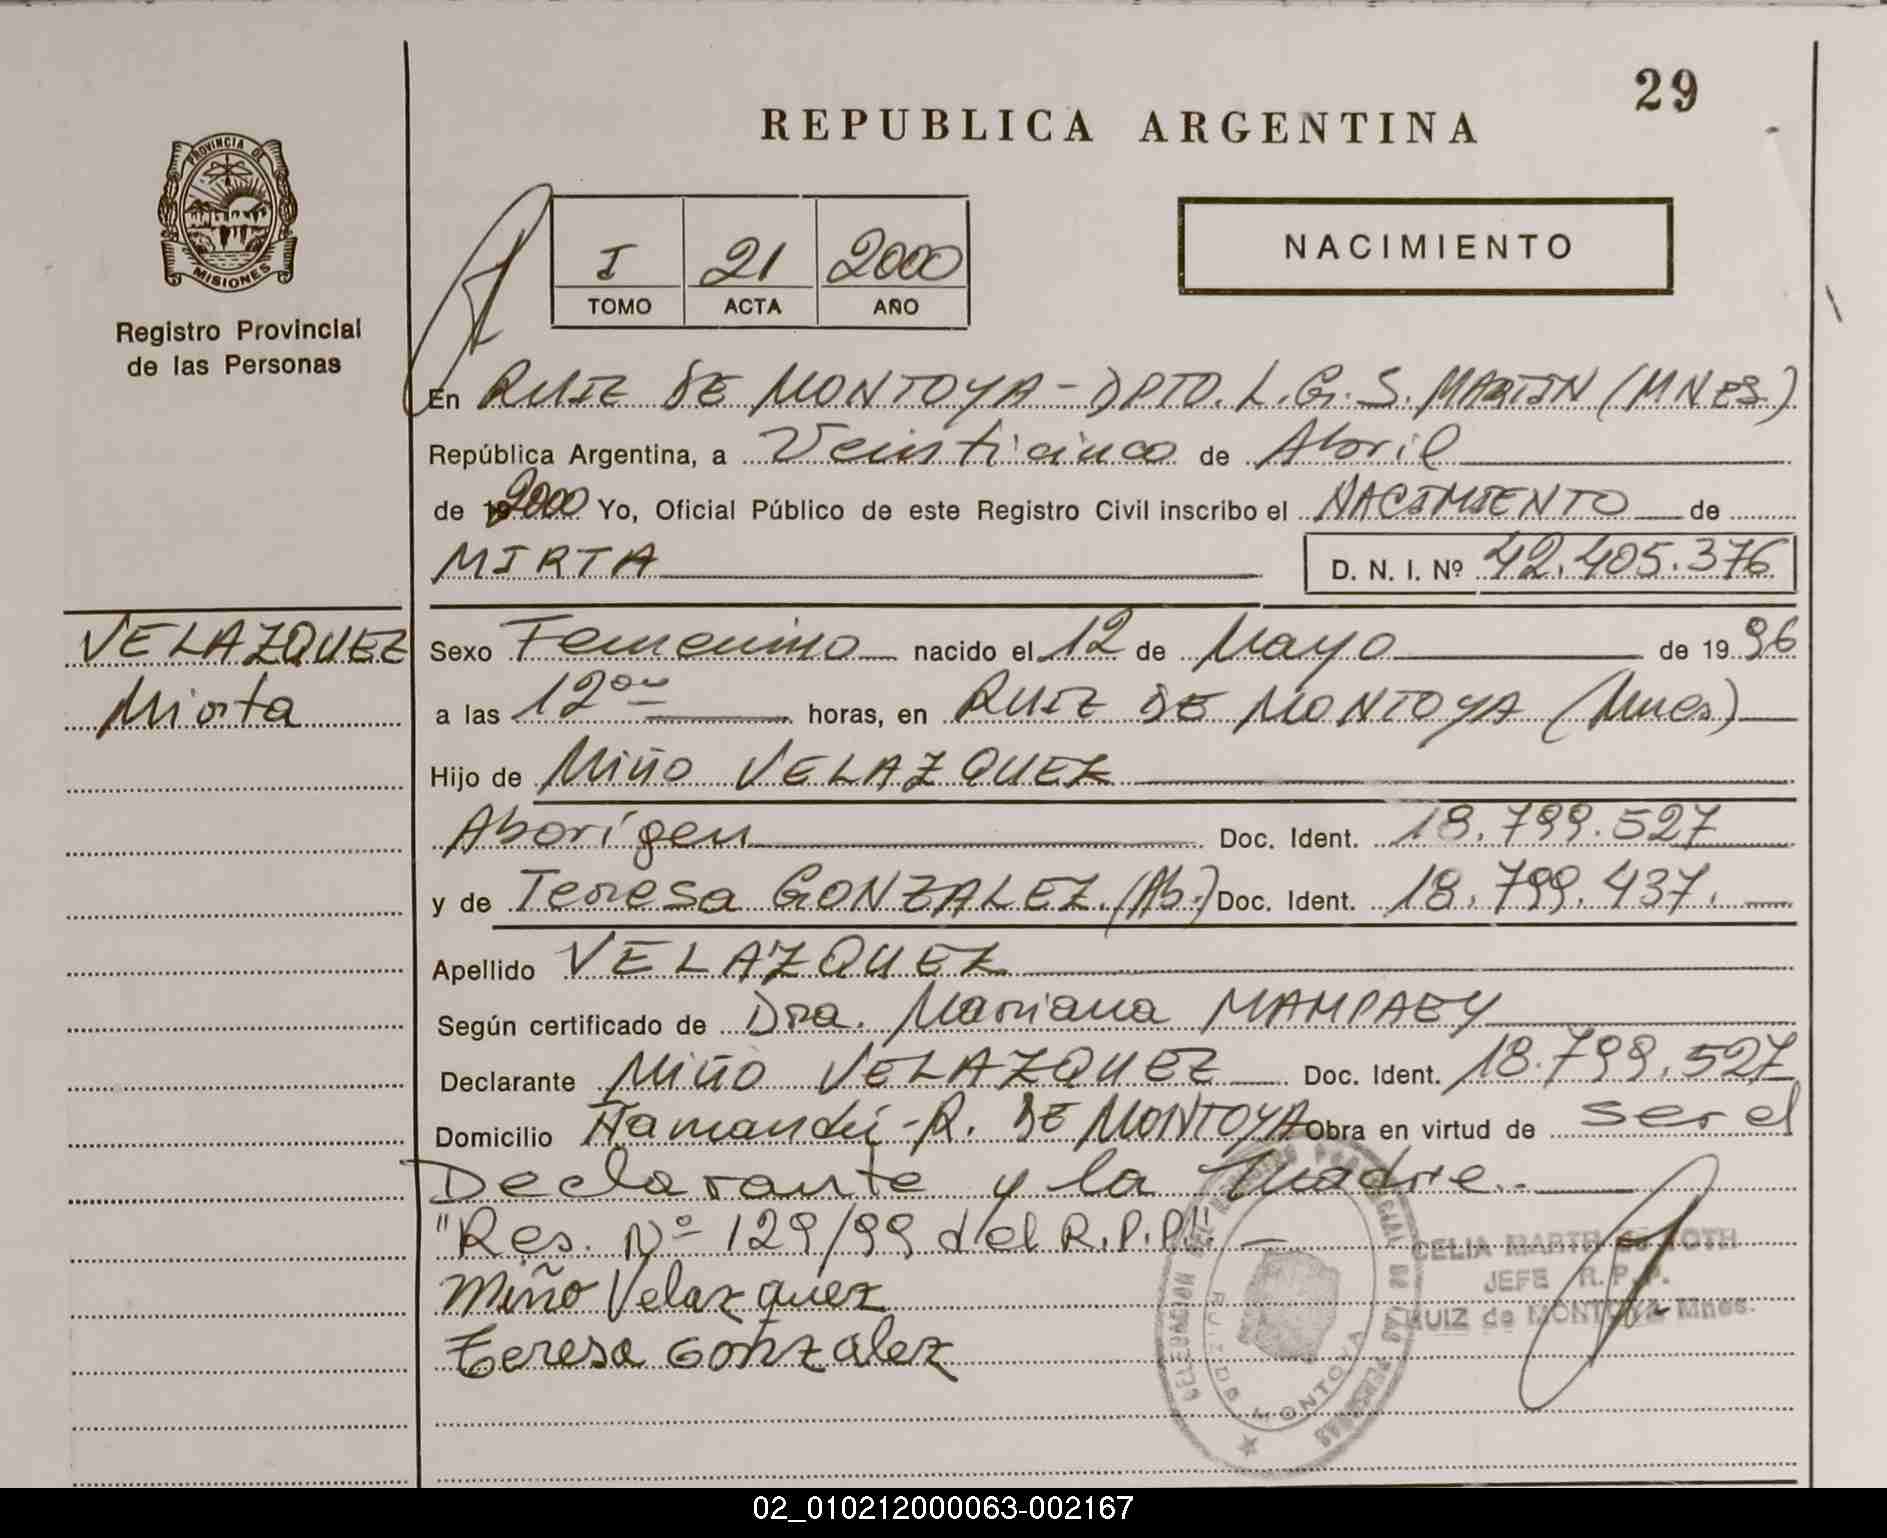 29
REPUBLICA ARGENTINA
PROVINCIA DE
MISIONES
Registro Provincial
de las Personas
I 21 2000
TOMO ACTA AÑO
NACIMIENTO
En RUIZ DE MONTOYA - DPTO. L. G. S. MARTIN (MNES.)
República Argentina, a Veinticinco de Abril
de 2000 Yo, Oficial Público de este Registro Civil inscribo el NACIMIENTO de
MIRTA D. N. I. Nº 42.405.376
VELAZQUEZ
Mirta
Sexo Femenino nacido el 12 de Mayo de 1996
a las 12 horas, en RUIZ DE MONTOYA (Mnes)
Hijo de Miño VELAZQUEZ
Aborígen Doc. Ident. 18.799.527
y de Teresa GONZALEZ (Ab.) Doc. Ident. 18.799.437.
Apellido VELAZQUEZ
Según certificado de Dra. Mariana MAMPAEY
Declarante Miño VELAZQUEZ Doc. Ident. 18.799.527
Domicilio Ñamandú - R. DE MONTOYA Obra en virtud de ser el
Declarante y la Madre.-
"Res. Nº 129/99 del R.P.P." -
Miño Velazquez
teresa Gonzalez
CELIA MARTH DE ROTH
JEFE R.P.P.
RUIZ de MONTOYA Mnes.
MONTOYA
02_010212000063-002167